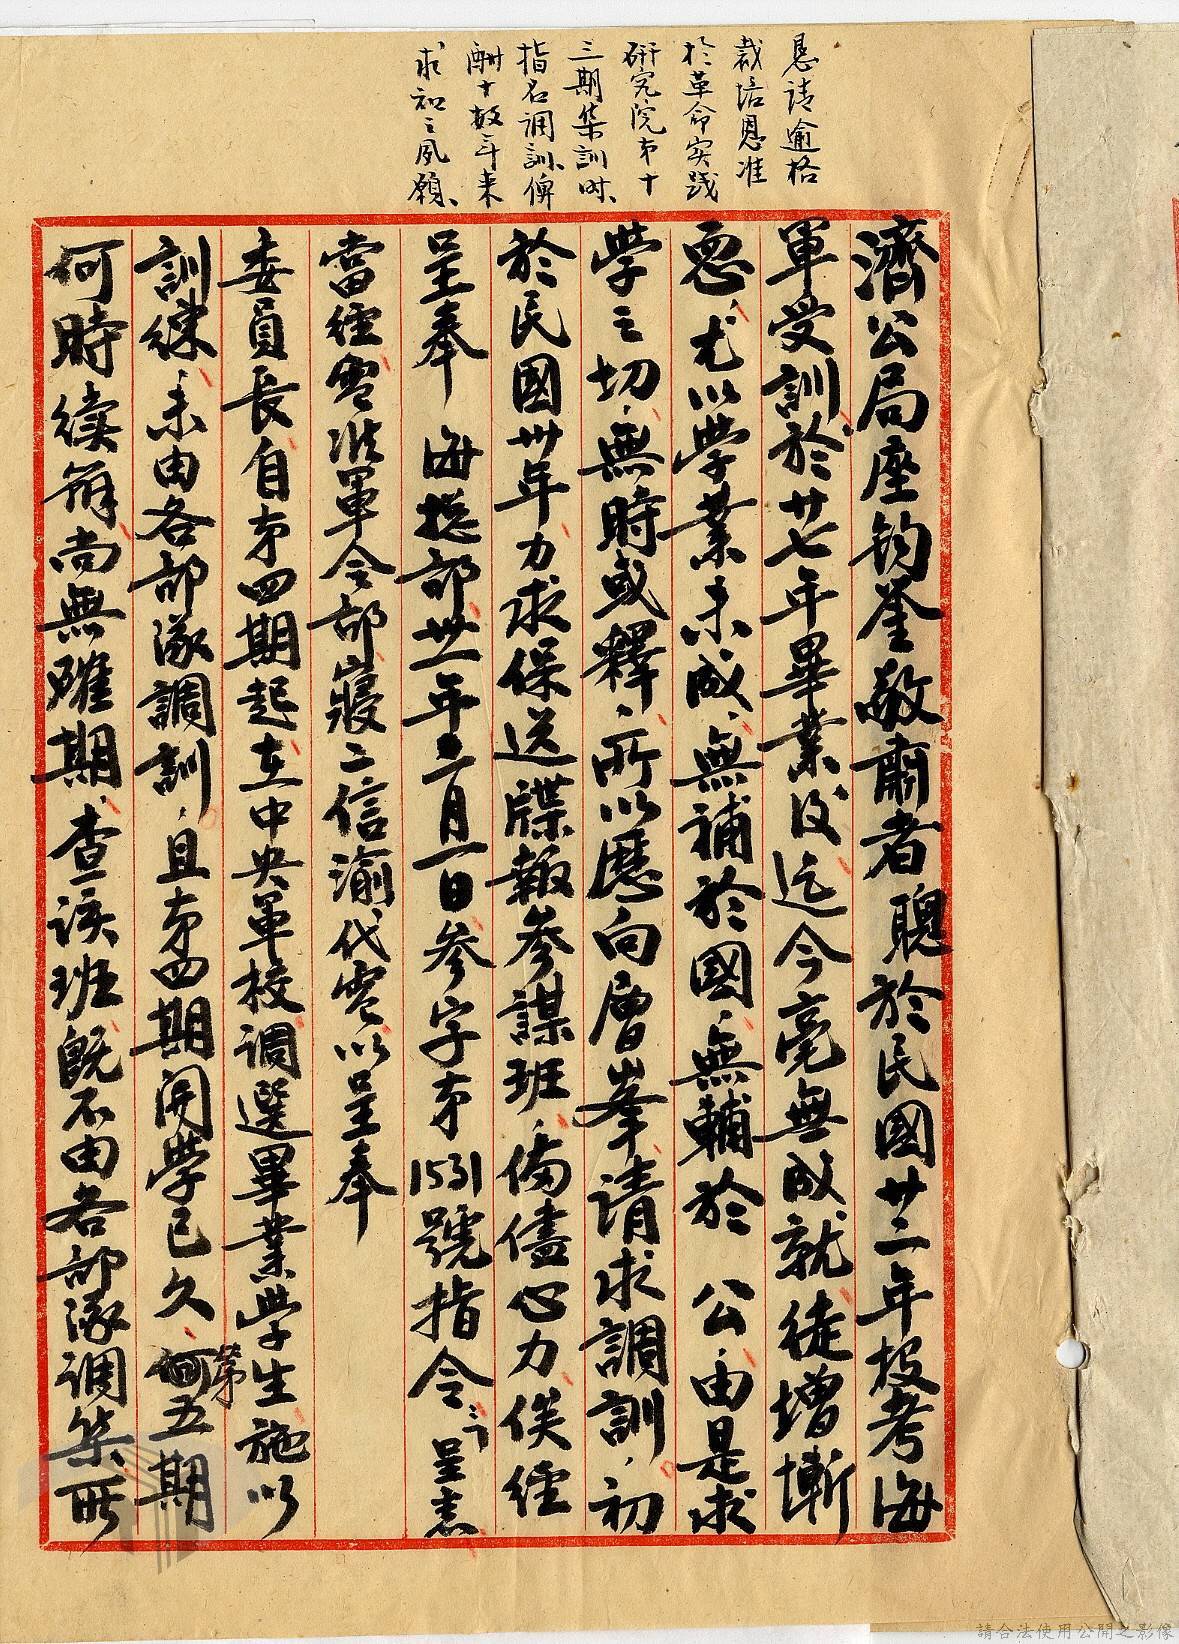 懇請逾格
裁培恩准
於革命实践
研究院第十
三期集訓时、
指名调訓、俾
酬十数年来
求知之夙願、
濟公局座鈞鉴敬肅者聰於民國廿二年投考海
軍受訓於廿七年畢業後迄今毫無成就徒增慚
恧、尤以學業未成、無補於國、無輔於 公、由是求
學之切、無時或釋、所以歷向層峯請求調訓、初
於民國卅年力求保送諜報參謀班、備儘心力俟经
呈奉 海總部卅一年二月一日參字第1531號指令「呈悉
當經電准軍令部寢二信渝代電以呈奉
委員長自第四期起在中央軍校调選畢業學生施以
訓練、未由各部隊調訓、且第四期開學已久、第五期
何時續辦尚無確期、查該班既不由各部隊调集所
請合法使用公開之影像